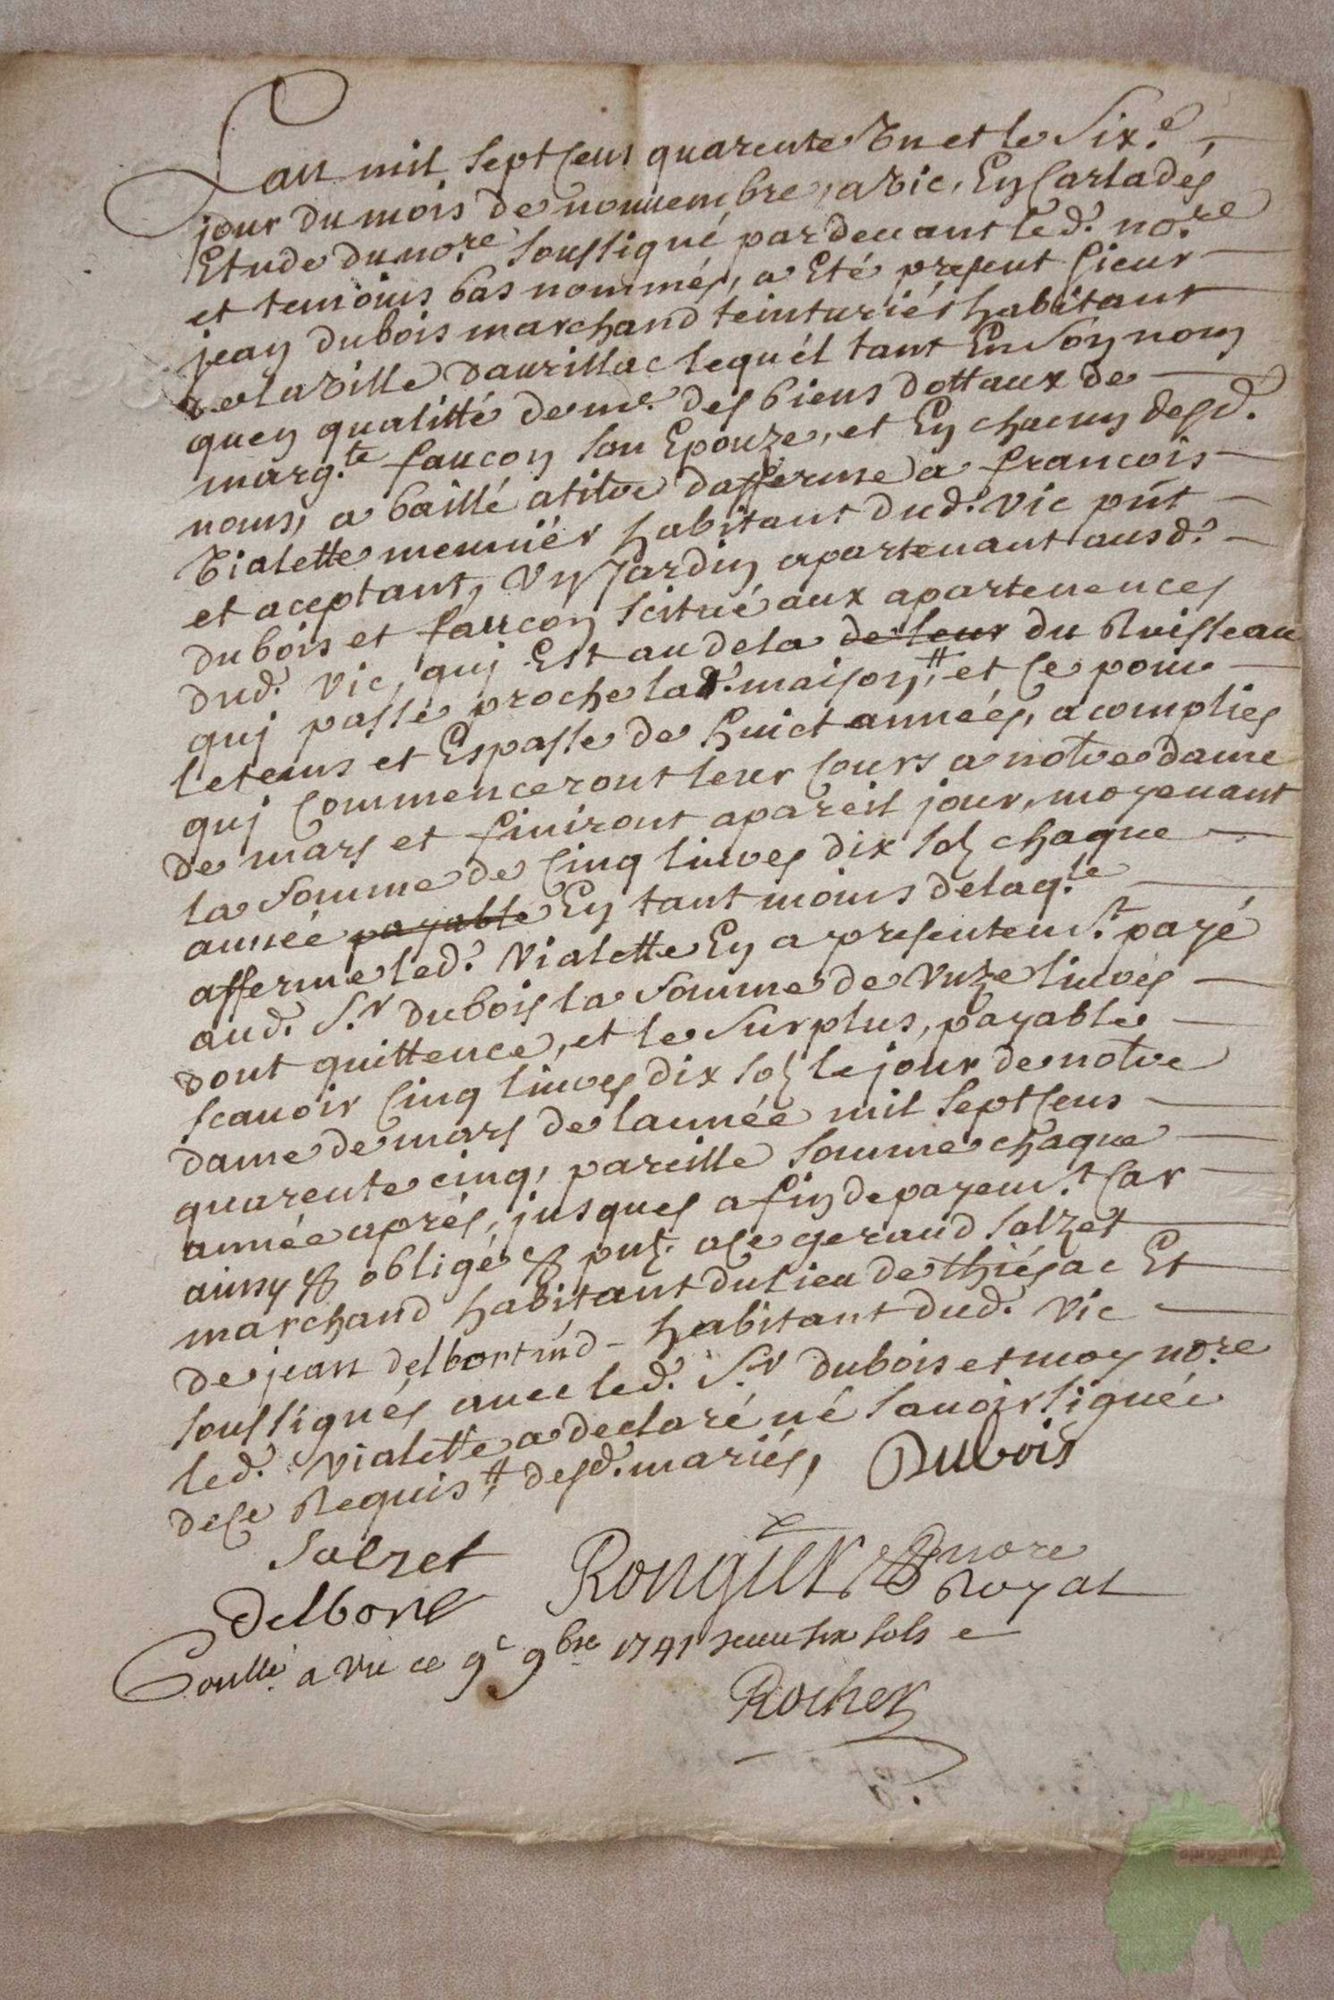 Lan mil sept Cens quarente Un et le Six.e
jour du mois de nouuembre, a vic, En Carladés
Etude du no.re soussigné pardeuant led. no.re
et temoins bas nommés, a Eté present sieur
jean dubois marchand teinturiér habitant
de la ville daurillac lequél tant En son nom
quen qualitté de m.e des biens dottaux de
marg.te faucon son Epouze, et En chacun desd.
noms, a baillé a titre dafferme a francois
Vialette meunïér habitant dud. Vic pñt
et aceptant, Vn Jardin apartenant ausd.
dubois et faucon scitué aux apartenences
dud. vic, quj Est au dela de leur du Ruisseau
quj passe proche lad. maison, et ce pour
le tems et Espasse de huict années, acomplies
quj Commenceront leur Cours a notre dame
de mars et finiront a pareil jour, moyenant
la somme de Cinq liures dix sols chaque
année payable En tant moins de laq.le
afferme led. Vialette En a presentem.t payé
aud. S.r dubois la somme de Vnze liures
dont quittence, et le surplus, payable
scauoir Cinq liures dix sols le jour de notre
dame de mars de lannée mil sept Cens
quarente cinq, pareille somme chaque
année aprés, jusques a fin de payem.t Car
ainsy & obligé & pnt. a ce geraud salzet
marchand habitant du lieu de thiézac Et
de jean delbort md - habitant dud. Vic
soussignés auec led. S.r dubois et moy no.re
led. Vialette a declaré né sauoir signér
de ce Requis desd. mariés, Dubois
Salzet
Rongier nore
Royal
delbort
Conllé a vic ce 9e 9bre 1741 sols
Rocher